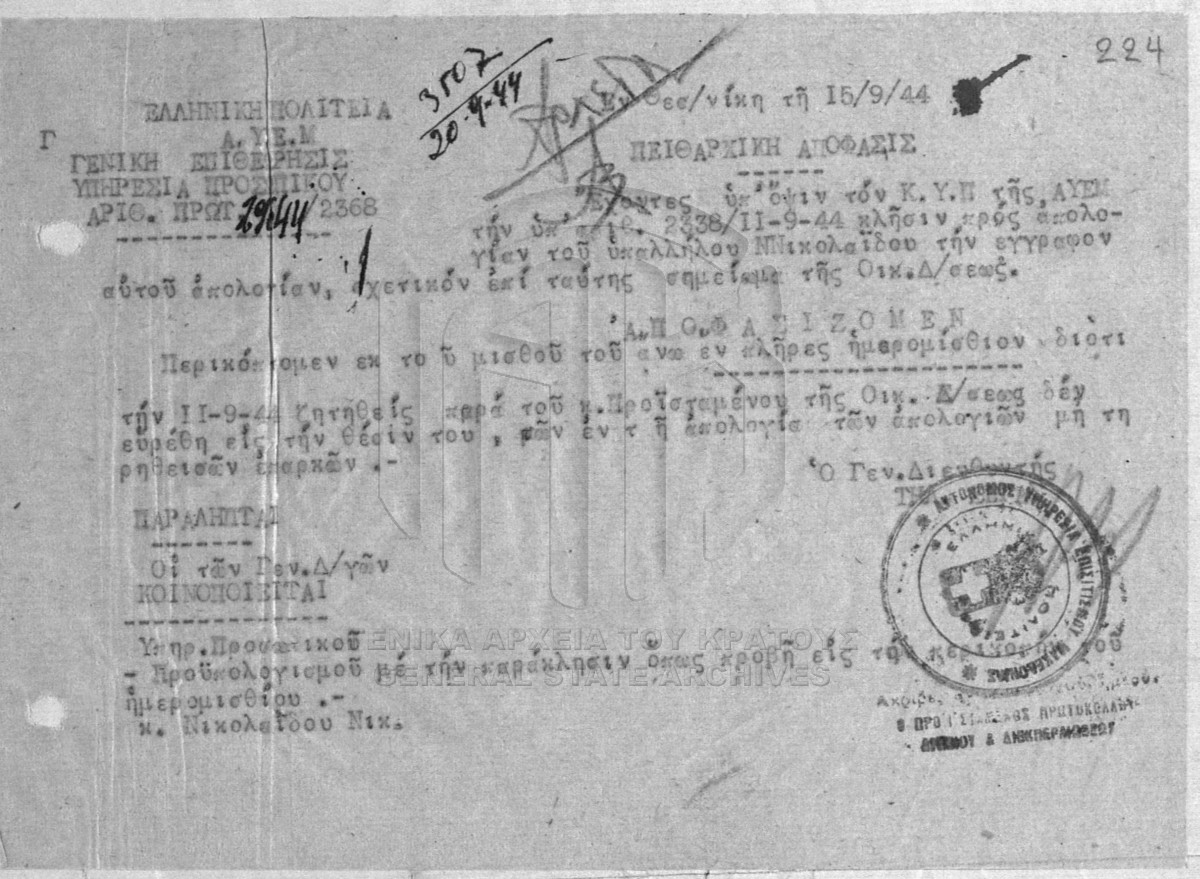 224
3507
20-9-44
Εν Θες/νίκη τῆ 15/9/44
ΕΛΛΗΝΙΚΗ ΠΟΛΙΤΕΙΑ
Γ Α.ΥΕ.Μ
ΓΕΝΙΚΗ ΕΠΙΘΕΡΗΣΙΣ
ΥΠΗΡΕΣΙΑ ΠΡΟΣΠΙΚΟΥ
ΑΡΙΘ. ΠΡΩΤ. /2368
ΠΕΙΘΑΡΧΙΚΗ ΑΠΟΦΑΣΙΣ
Ἔχοντες ὑπ'ὄψιν τόν Κ.Υ.Π τῆς ΑΥΕΜ
τήν ὑπ'ἀριθ. 2338/ΙΙ-9-44 κλῆσιν πρός ἀπολο-
γίαν τοῦ ὑπαλλήλου ΝΝικολαΐδου τήν εγγραφον
αὐτοῦ ἀπολογίαν, σχετικόν ἐπί ταύτης σημείωμα τῆς Οικ.Δ/σεως.
Ἀ.Π Ο.Φ Α Σ Ι Ζ Ο Μ Ε Ν
Περικόπτομεν εκ το ῦ μισθοῦ τοῦ ανω εν πλῆρες ἡμερομίσθιον διότι
τήν ΙΙ-9-44 ζητηθείς παρά τοῦ κ.Προϊσταμένου τῆς Οικ. Δ/σεως δέν
εὑρέθη είς τήν θέσιν του , τῶν ἐν τ ῆ ἀπολογία τῶν ἀπολογιῶν μή τη
ρηθεισῶν ἐπαρκῶν .-
Ὁ Γεν.Διευθυντής
ΠΑΡΑΛΗΠΤΑΙ
Οἱ τῶν Γεν.Δ/γῶν
ΚΟΙΝΟΠΟΙΕΙΤΑΙ
Υπηρ.Προσωπικοῦ
- Προϋπολογισμοῦ μέ τήν παράκλησιν ὅπως προβῆ είς τήν περικοπήν τοῦ
ἡμερομισθίου .-
κ. Νικολαΐδου Νικ.
ΑΥΤΟΝΟΜΟΣ ΥΠΗΡΕΣΙΑ ΕΠΙΣΙΤΙΣΜΟΥ ΜΑΚΕΔΟΝΙΑΣ
ΕΛΛΗΝΙΚΗ ΠΟΛΙΤΕΙΑ
Ο ΠΡΟΪΣΤΑΜΕΝΟΣ ΠΡΩΤΟΚΟΛΛΟΥ
ΑΡΧΕΙΟΥ & ΔΙΕΚΠΕΡΑΙΩΣΕΩΣ
ΓΕΝΙΚΑ ΑΡΧΕΙΑ ΤΟΥ ΚΡΑΤΟΥΣ
GENERAL STATE ARCHIVES